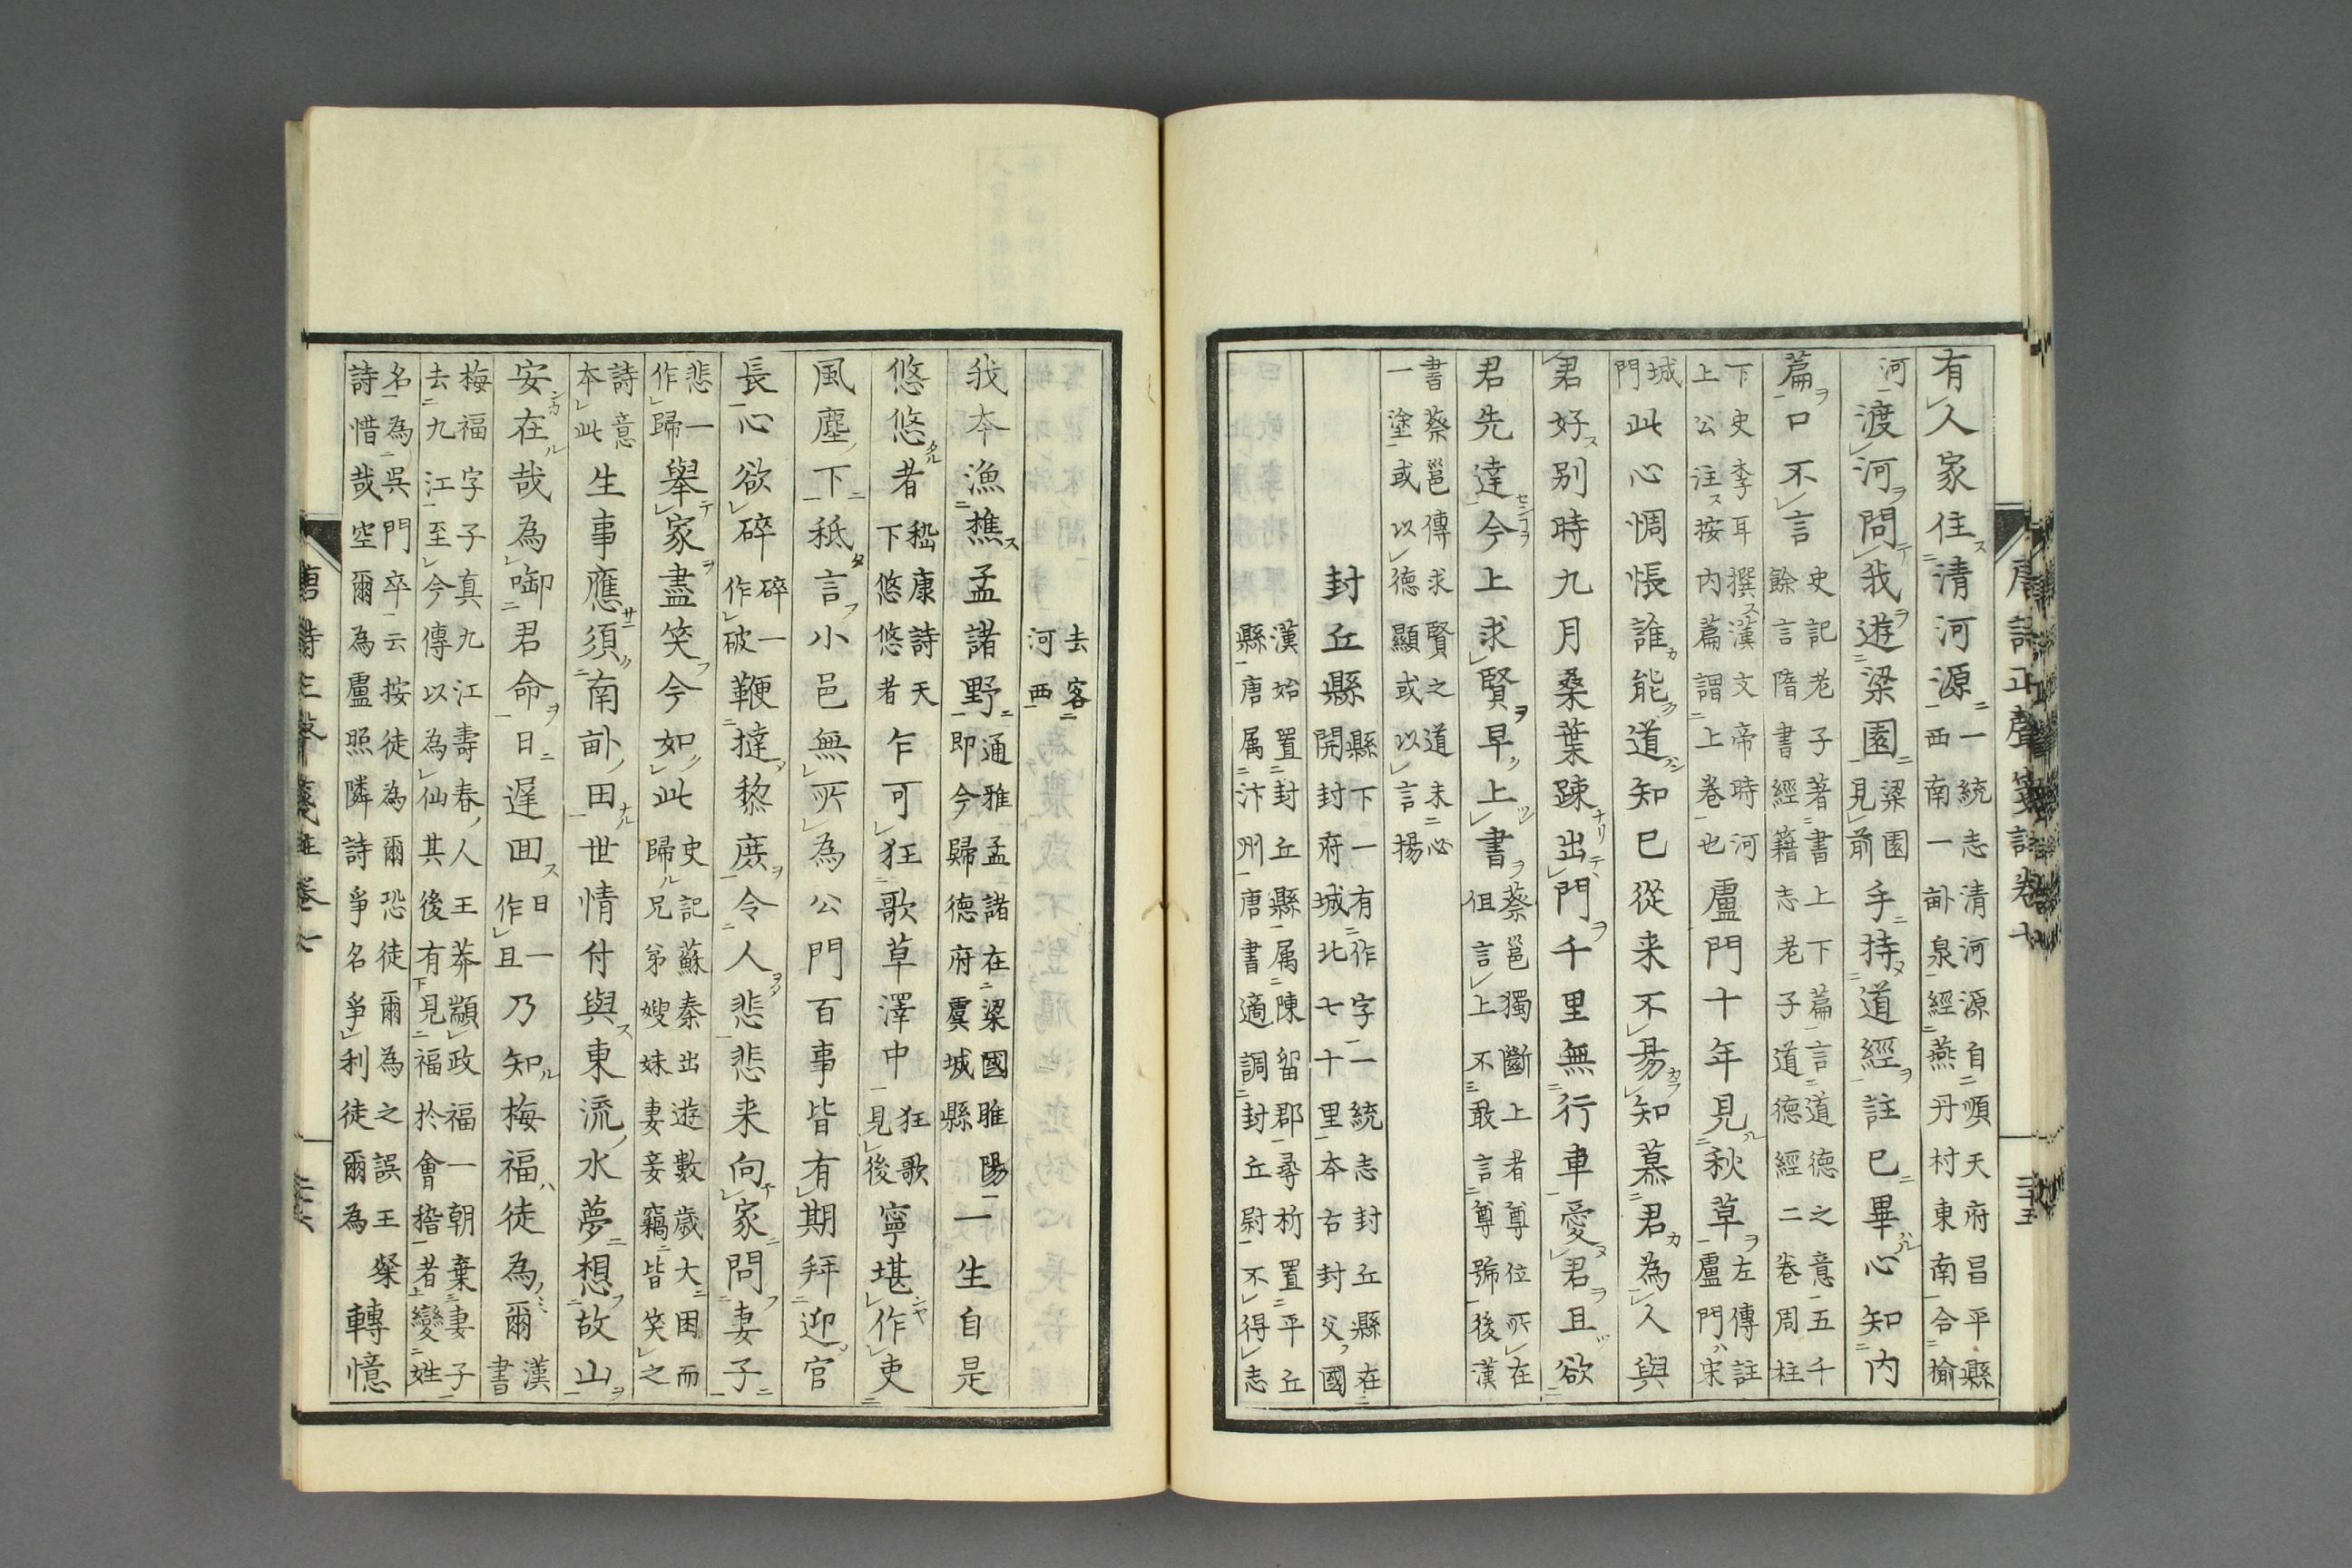 有人家住清河源一統志清河源自順天府昌平縣西南一畝泉經燕丹村東南合榆
河渡河問我遊梁園梁園見前手持道經註已畢心知內
篇口不言史記老子著書上下篇言道德之意五千餘言隋書經籍志老子道德經二卷周柱
下史李耳撰漢文帝時河上公注按内篇謂上卷也盧門十年見秋草左傳註盧門宋
城門此心惆悵誰能道知已從来不易知慕君為人與
君好別時九月桑葉疎出門千里無行車愛君且欲
君先達今上求賢早上書蔡邕獨斷上者尊位所在但言上不敢言尊號後漢
書蔡邕傳求賢之道未必一塗或以德顯或以言揚
封丘縣縣下一有作字一統志封丘縣在開封府城北七十里本古封父國
漢始置封丘縣属陳留郡尋析置平丘縣唐属汴州唐書適調封丘尉不得志
去客河西
我本漁樵孟諸野通雅孟諸在梁國睢陽即今歸德府虞城縣一生自是
悠悠者嵇康詩天下悠悠者乍可狂歌草澤中狂歌見後寧堪作吏
風塵下秪言小邑無所為公門百事皆有期拜迎官
長心欲碎碎一作破鞭撻黎庶令人悲悲来向家問妻子
悲一作歸一舉家盡笑今如此史記蘇秦出遊數歲大困而歸兄弟嫂妹妻妾竊皆笑之
詩意本此生事應須南畝田世情付與東流水夢想故山
安在哉為啣君命日遅囬日一作且乃知梅福徒為爾漢書
梅福字子真九江壽春人王莽顓政福一朝棄妻子去九江至今傳以為仙其後有見福於會稽者變姓
名為吳門卒云按徒為爾恐徒爾為之誤王粲詩惜哉空爾為盧照隣詩爭名爭利徒爾為轉憶
唐詩正聲箋註卷七